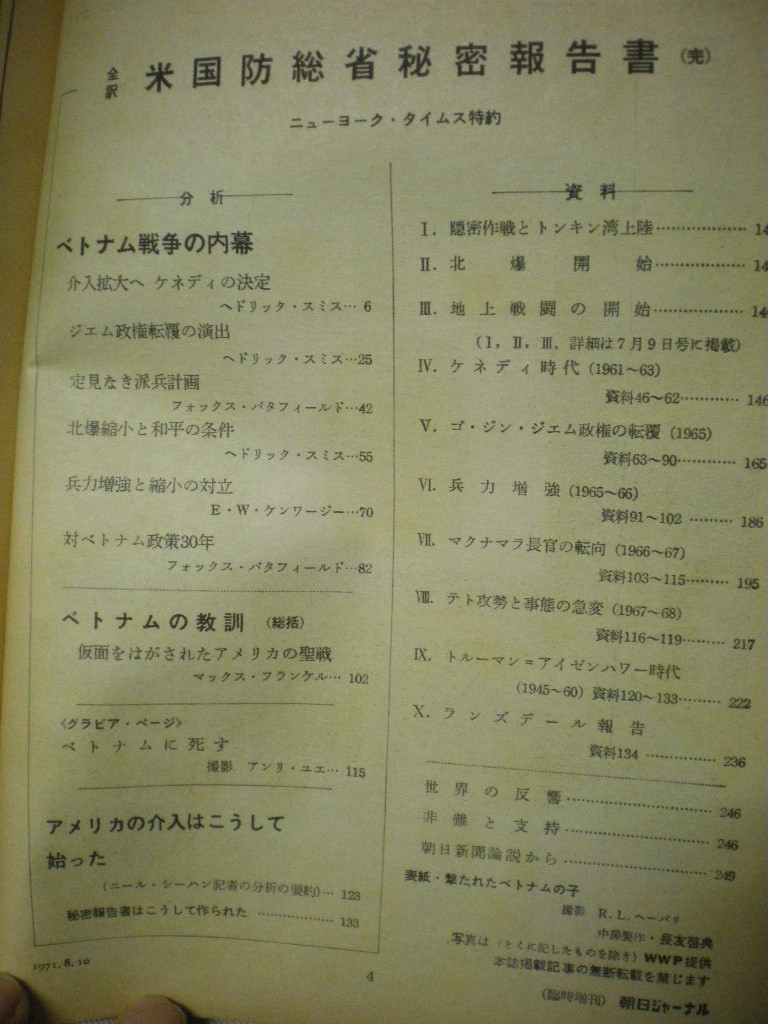 全訳 米国防総省秘密報告書 (完)
ニューヨーク・タイムス特約
分析
ベトナム戦争の内幕
介入拡大へ ケネディの決定
ヘドリック・スミス… 6
ジエム政権転覆の演出
ヘドリック・スミス…25
定見なき派兵計画
フォックス・バタフィールド…42
北爆縮小と和平の条件
ヘドリック・スミス…55
兵力増強と縮小の対立
E・W・ケンワージー…70
対ベトナム政策30年
フォックス・バタフィールド…82
ベトナムの教訓 (総括)
仮面をはがされたアメリカの聖戦
マックス・フランケル… 102
《グラビア・ページ》
ベトナムに死す
撮影 アンリ・ユエ… 115
アメリカの介入はこうして
始った
(ニール・シーハン記者の分析の要約)… 123
秘密報告書はこうして作られた ………… 133
資料
Ⅰ. 隠密作戦とトンキン湾上陸…………… 14
Ⅱ. 北爆開始…………… 14
Ⅲ. 地上戦闘の開始…………… 14
(Ⅰ, Ⅱ, Ⅲ, 詳細は7月9日号に掲載)
Ⅳ. ケネディ時代 (1961〜63)
資料46〜62………… 146
Ⅴ. ゴ・ジン・ジエム政権の転覆 (1965)
資料63〜90………… 165
Ⅵ. 兵力増強 (1965〜66)
資料91〜102 ……… 186
Ⅶ. マクナマラ長官の転向 (1966〜67)
資料103〜115……… 195
Ⅷ. テト攻勢と事態の急変 (1967〜68)
資料116〜119……… 217
Ⅸ. トルーマン=アイゼンハワー時代
(1945〜60) 資料120〜133……… 222
Ⅹ. ランズデール報告
資料134 ………… 236
世界の反響…………… 246
非難と支持…………… 246
朝日新聞論説から…………… 249
表紙・撃たれたベトナムの子
撮影 R.L.ヘーバリ
中扉製作・長友啓典
写真は (とくに記したものを除き) WWP提供
本誌掲載記事の無断転載を禁じます
(臨時増刊) 朝日ジャーナル
1971.8.10
4